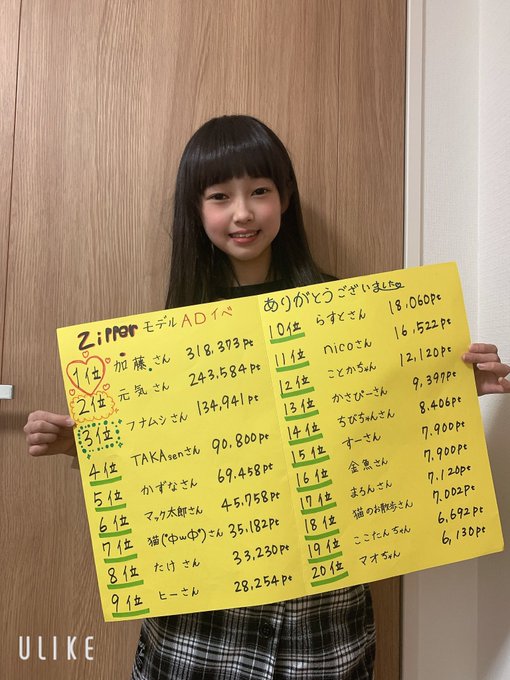 Zipper モデル ADイベ
1位 加藤さん 318,373pt
2位 元気さん 243,584pt
3位 フナムシさん 134,941pt
4位 TAKAsenさん 90,800pt
5位 かずなさん 69.458pt
6位 マック太郎さん 45.758pt
7位 猫(*ФωФ*)さん 35,182pt
8位 たけさん 33,230pt
9位 ヒーさん 28,254pt
ありがとうございました
10位 らすとさん 18,060pt
11位 nicoさん 16,522pt
12位 ことかちゃん 12,120pt
13位 かさぴーさん 9,397pt
14位 ちびちゃんさん 8.406pt
15位 すーさん 7.900pt
16位 金魚さん 7,900pt
17位 まろんさん 7.120pt
18位 猫のお散歩さん 7.002pt
19位 ここたんちゃん 6,692pt
20位 マオちゃん 6,130pt
ULIKE